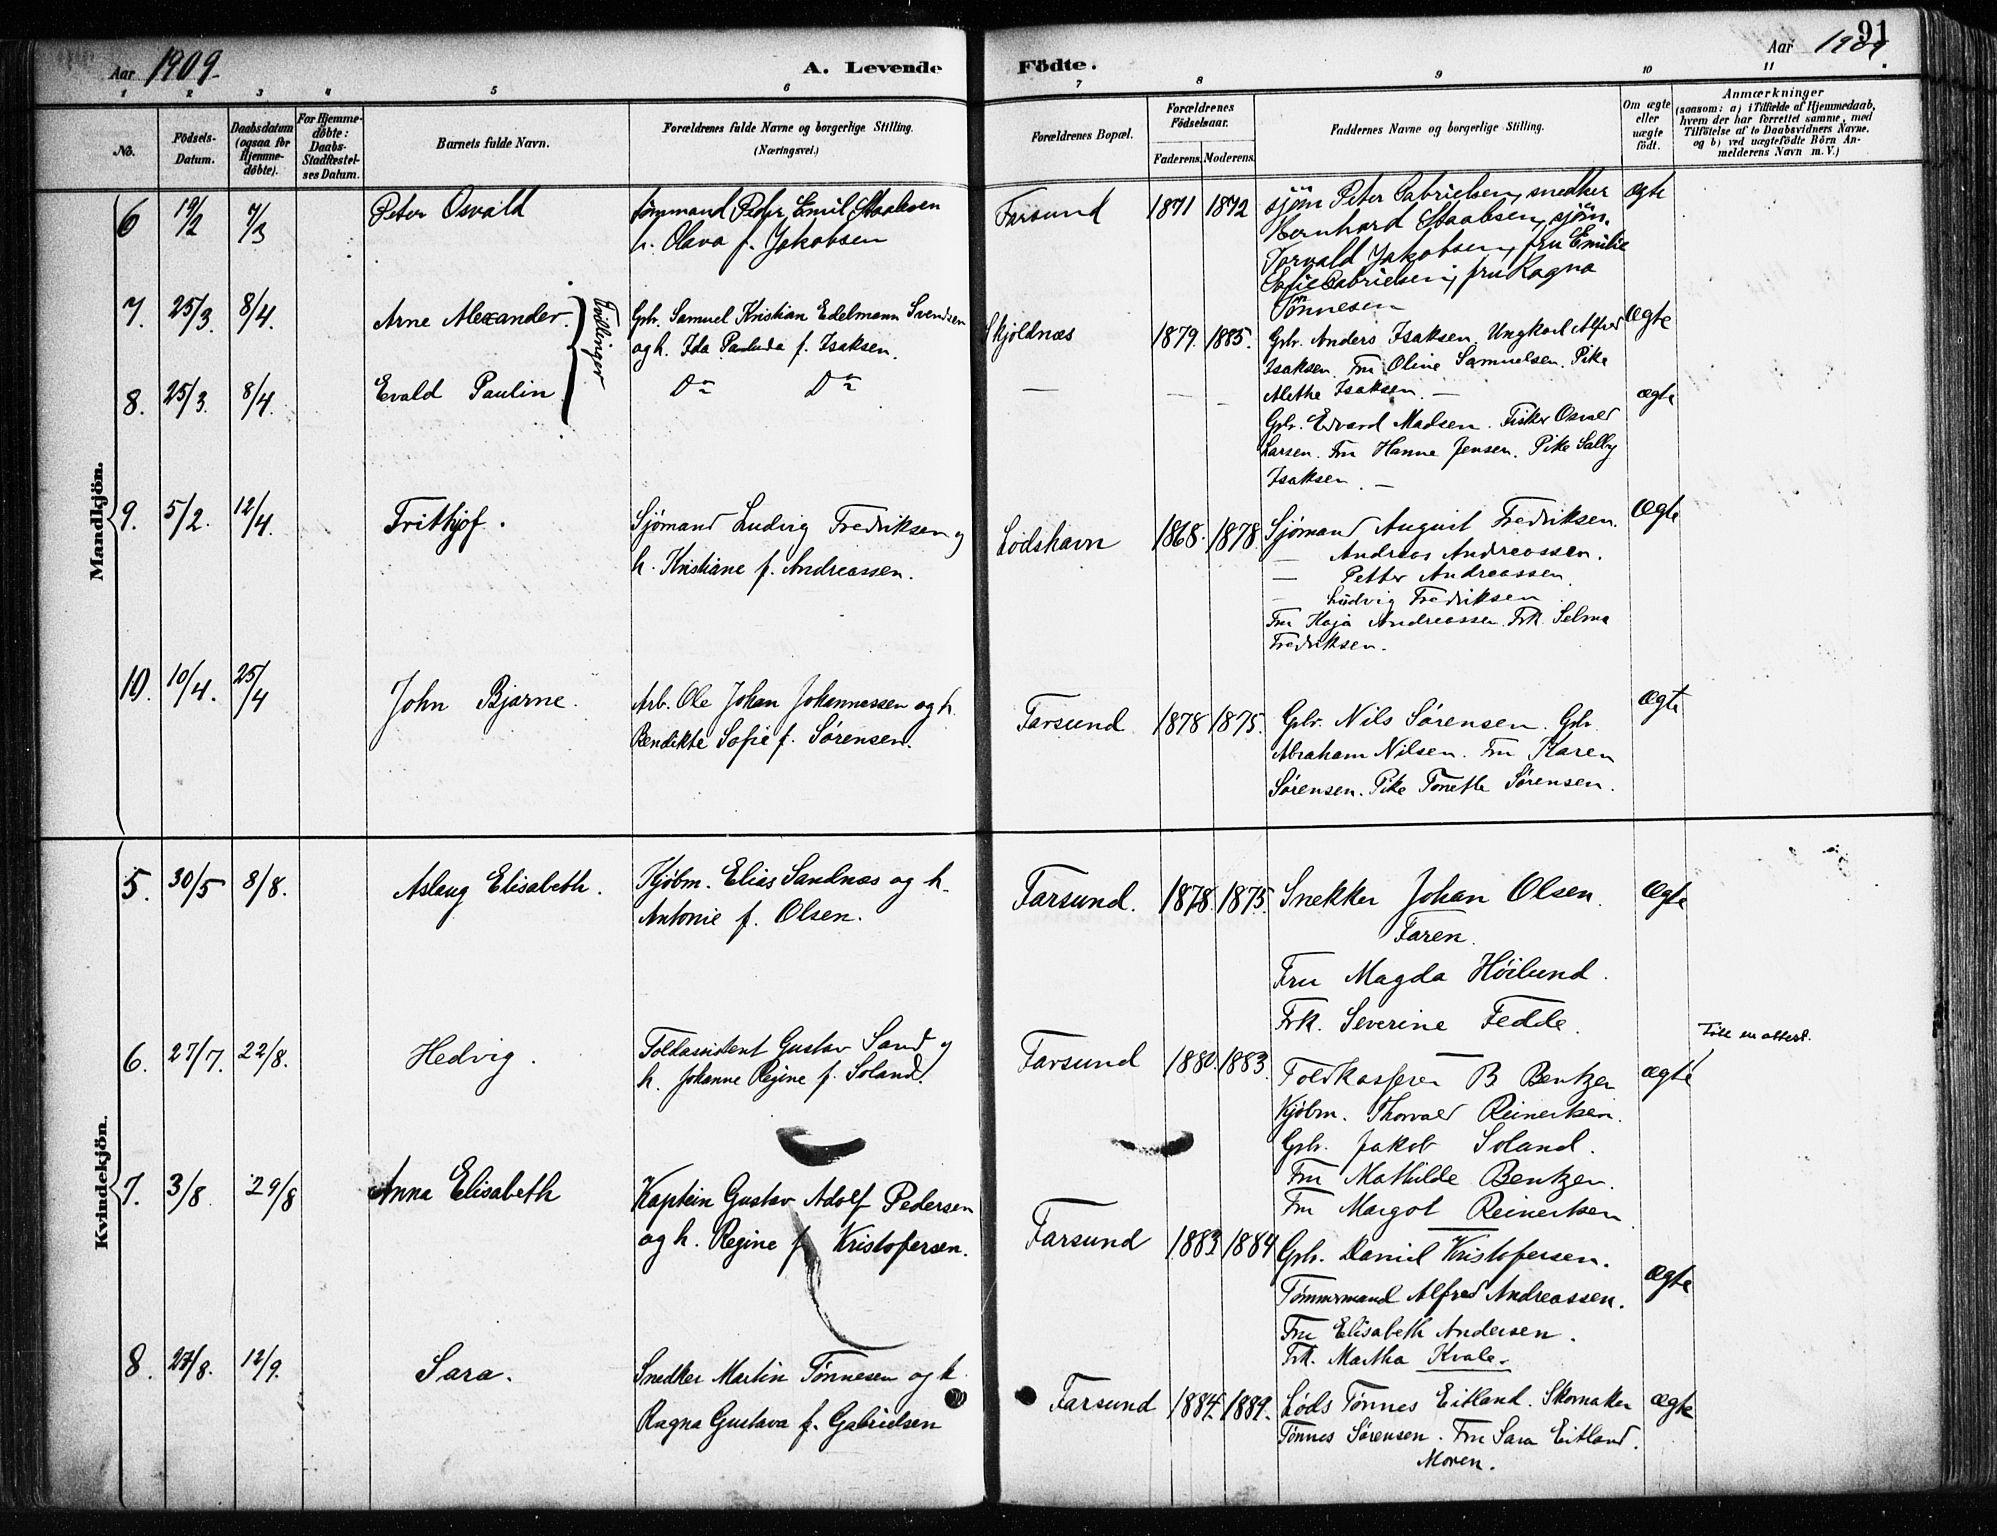 Aar 1909. A. Levende
Födte. Aar 1909.
91
1 2 3 4 5 6 7 8 9 10 11
No.
Födsels-
Datum.
Daabsdatum
(ogsaa for
Hjemme-
döbte).
For Hjemme-
döbte:
Daabs-
Stadfæstel-
ses Datum.
Barnets fulde Navn.
Forældrenes fulde Navne og borgerlige Stilling.
(Næringsvei.)
Forældrenes Bopæl.
Forældrenes
Födselsaar.
Faderens. Moderens.
Faddernes Navne og borgerlige Stilling.
Om ægte
eller
uægte
födt.
Anmærkninger
(saasom: a) i Tilfælde af Hjemmedaab,
hvem der har forrettet samme, med
Tilföielse af to Daabsvidners Navne.
og b) ved uægtefödte Börn An-
melderens Navn m. V.)
Mandkjön.
6 19/2 7/3 Peter Osvald
sømmand Peder Emil Staalesen
h. Olava f. Jakobsen
Farsund 1871 1872
sjöm Peter Gabrielsen, snedker
Bernhard Staalesen, sjöm.
Torvald Jakobsen, fru Emilie
Sofie Gabrielsen, fru Ragna
Tønnesen
ægte
7. 25/3. 8/4. Arne Alexander. Tvillinger
Gbr. Samuel Kristian Edelmann Svendsen
og h. Ida Paulida f. Isaksen.
Skjoldnæs 1879. 1885.
Gbr. Anders Isaksen. Ungkarl Alfred
Isaksen. Fru Oline Samuelsen. Pike
Alethe Isaksen. —
ægte
8. 25/3. 8/4. Evald Paulin
Do Do
— — —
Gbr. Edvard Madsen. Fisker Osvald
Larsen. Fru Hanne Jensen. Pike Salby
Isaksen. —
ægte
9. 5/2. 12/4. Frithjof.
Sjømand Ludvig Fredriksen og
h. Kristiane f. Andreassen.
Lodshavn 1868. 1878.
Sjømand August Fredriksen.
— Andreas Andreassen.
— Petter Andreassen.
— Ludvig Fredriksen.
Fru Kaja Andreassen. Frk. Selma
Fredriksen.
Ægte
10. 10/4. 25/4 John Bjarne.
Arb. Ole Johan Johannessen og h.
Bendikte Sofie f. Sørensen.
Farsund 1878 1875.
Gbr. Nils Sørensen. Gbr.
Abraham Nilsen. Fru Karen
Sørensen. Pike Tonette Sørensen.
ægte
Kvindekjön.
5. 30/5 8/8. Aslaug Elisabeth.
Kjøbm. Elias Sandnæs og h.
Antonie f. Olsen.
Farsund. 1878. 1875.
Snekker Johan Olsen.
Faren.
Fru Magda Höilund.
Frk. Severine Fedde.
Ægte
6. 27/7. 22/8. Hedvig.
Toldassistent Gustav Sand og
h. Johanne Regine f. Soland.
Farsund 1880. 1883.
Toldkasserer B Bentzen
Kjöbm. Thorvald Reinertsen.
Gbr. Jakob Soland.
Fru Mathilde Bentzen.
Fru Margot Reinertsen
ægte
attest.
7. 3/8. 29/8 Anna Elisabeth
Kaptein Gustav Adolf Pedersen
og h. Regine f Kristofersen.
Farsund 1883 1884
Gbr. Daniel Kristofersen.
Tømmermand Alfred Andreassen.
Fru Elisabeth Andersen.
Frk. Martha Kvale.
Ægte
8. 27/8. 12/9. Sara.
Snedker Martin Tönnesen og h.
Ragna Gustava f. Gabrielsen
Farsund 1884. 1889.
Lods Tønnes Eitland. Skomaker
Tønnes Sørensen. Fru Sara Eitland.
Moren.
Ægte